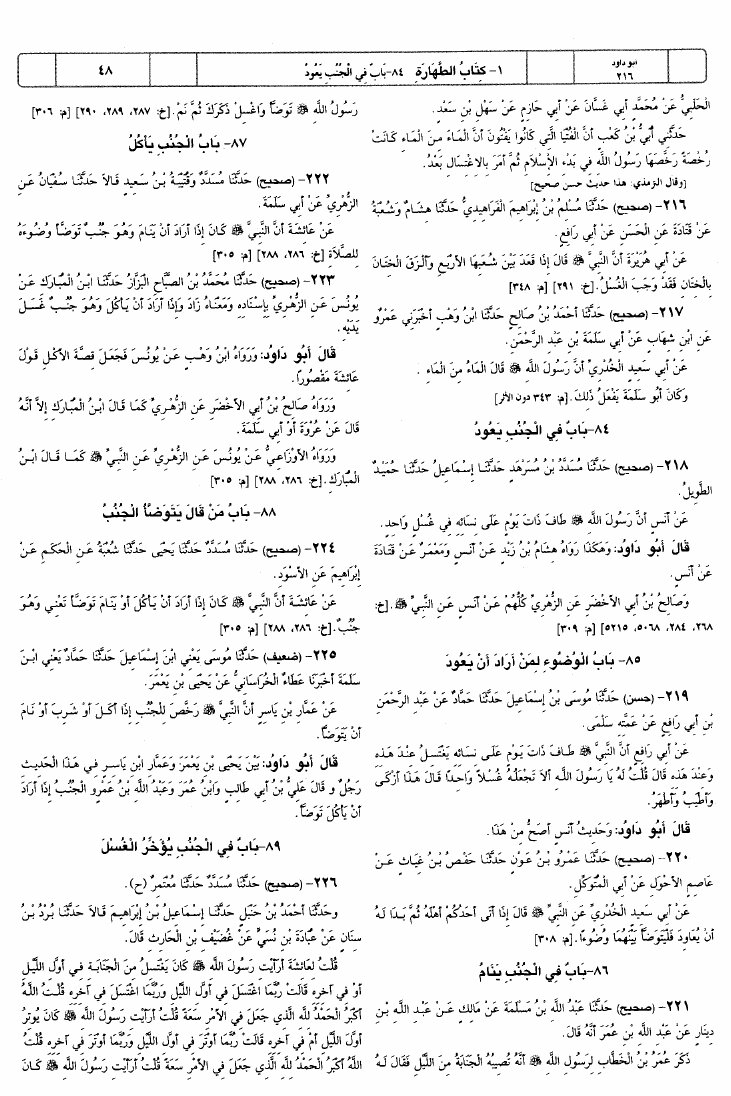 ابو داود
٢١٦
١- كِتَابُ الطَّهَارَةِ ٨٤-بَابٌ فِي الْجُنُبِ يَعُودُ
٤٨
الْحَلَبِيُّ عَنْ مُحَمَّدٍ أَبِي غَسَّانَ عَنْ أَبِي حَازِمٍ عَنْ سَهْلِ بْنِ سَعْدٍ.
حَدَّثَنِي أُبَيُّ بْنُ كَعْبٍ أَنَّ الْفُتْيَا الَّتِي كَانُوا يُفْتُونَ أَنَّ الْمَاءَ مِنَ الْمَاءِ كَانَتْ
رُخْصَةً رَخَّصَهَا رَسُولُ اللَّهِ فِي بَدْءِ الإِسْلاَمِ ثُمَّ أَمَرَ بِالاِغْتِسَالِ بَعْدُ.
[وقال الترمذي: هذا حديث حسن صحيح]
٢١٦- (صحيح) حَدَّثَنَا مُسْلِمُ بْنُ إِبْرَاهِيمَ الْفَرَاهِيدِيُّ حَدَّثَنَا هِشَامٌ وَشُعْبَةُ
عَنْ قَتَادَةَ عَنِ الْحَسَنِ عَنْ أَبِي رَافِعٍ.
عَنْ أَبِي هُرَيْرَةَ أَنَّ النَّبِيَّ ﷺ قَالَ إِذَا قَعَدَ بَيْنَ شُعَبِهَا الأَرْبَعِ وَأَلْزَقَ الْخِتَانَ
بِالْخِتَانِ فَقَدْ وَجَبَ الْغُسْلُ. [خ: ٢٩١] [م: ٣٤٨]
٢١٧- (صحيح) حَدَّثَنَا أَحْمَدُ بْنُ صَالِحٍ حَدَّثَنَا ابْنُ وَهْبٍ أَخْبَرَنِي عَمْرٌو
عَنِ ابْنِ شِهَابٍ عَنْ أَبِي سَلَمَةَ بْنِ عَبْدِ الرَّحْمَنِ.
عَنْ أَبِي سَعِيدٍ الْخُدْرِيِّ أَنَّ رَسُولَ اللَّهِ ﷺ قَالَ الْمَاءُ مِنَ الْمَاءِ .
وَكَانَ أَبُو سَلَمَةَ يَفْعَلُ ذَلِكَ. [م: ٣٤٣ دون الأثر]
٨٤-بَابٌ فِي الْجُنُبِ يَعُودُ
٢١٨- (صحيح) حَدَّثَنَا مُسَدَّدُ بْنُ مُسَرْهَدٍ حَدَّثَنَا إِسْمَاعِيلُ حَدَّثَنَا حُمَيْدٌ
الطَّوِيلُ.
عَنْ أَنَسٍ أَنَّ رَسُولَ اللَّهِ ﷺ طَافَ ذَاتَ يَوْمٍ عَلَى نِسَائِهِ فِي غُسْلٍ وَاحِدٍ.
قَالَ أَبُو دَاوُدَ: وَهَكَذَا رَوَاهُ هِشَامُ بْنُ زَيْدٍ عَنْ أَنَسٍ وَمَعْمَرٌ عَنْ قَتَادَةَ
عَنْ أَنَسٍ.
وَصَالِحُ بْنُ أَبِي الأَخْضَرِ عَنِ الزُّهْرِيِّ كُلُّهُمْ عَنْ أَنَسٍ عَنِ النَّبِيِّ ﷺ. [خ:
٢٦٨، ٢٨٤، ٥٠٦٨، ٥٢١٥] [م: ٣٠٩]
٨٥- بَابُ الْوُضُوءِ لِمَنْ أَرَادَ أَنْ يَعُودَ
٢١٩- (حسن) حَدَّثَنَا مُوسَى بْنُ إِسْمَاعِيلَ حَدَّثَنَا حَمَّادٌ عَنْ عَبْدِ الرَّحْمَنِ
بْنِ أَبِي رَافِعٍ عَنْ عَمَّتِهِ سَلْمَى.
عَنْ أَبِي رَافِعٍ أَنَّ النَّبِيَّ ﷺ طَافَ ذَاتَ يَوْمٍ عَلَى نِسَائِهِ يَغْتَسِلُ عِنْدَ هَذِهِ
وَعِنْدَ هَذِهِ قَالَ قُلْتُ لَهُ يَا رَسُولَ اللَّهِ أَلاَ تَجْعَلُهُ غُسْلاً وَاحِدًا قَالَ هَذَا أَزْكَى
وَأَطْيَبُ وَأَطْهَرُ.
قَالَ أَبُو دَاوُدَ: وَحَدِيثُ أَنَسٍ أَصَحُّ مِنْ هَذَا.
٢٢٠- (صحيح) حَدَّثَنَا عَمْرُو بْنُ عَوْنٍ حَدَّثَنَا حَفْصُ بْنُ غِيَاثٍ عَنْ
عَاصِمٍ الأَحْوَلِ عَنْ أَبِي الْمُتَوَكِّلِ.
عَنْ أَبِي سَعِيدٍ الْخُدْرِيِّ عَنِ النَّبِيِّ ﷺ قَالَ إِذَا أَتَى أَحَدُكُمْ أَهْلَهُ ثُمَّ بَدَا لَهُ
أَنْ يُعَاوِدَ فَلْيَتَوَضَّأْ بَيْنَهُمَا وُضُوءًا. [م: ٣٠٨]
٨٦-بَابٌ فِي الْجُنُبِ يَنَامُ
٢٢١- (صحيح) حَدَّثَنَا عَبْدُ اللَّهِ بْنُ مَسْلَمَةَ عَنْ مَالِكٍ عَنْ عَبْدِ اللَّهِ بْنِ
دِينَارٍ عَنْ عَبْدِ اللَّهِ بْنِ عُمَرَ أَنَّهُ قَالَ.
ذَكَرَ عُمَرُ بْنُ الْخَطَّابِ لِرَسُولِ اللَّهِ ﷺ أَنَّهُ تُصِيبُهُ الْجَنَابَةُ مِنَ اللَّيْلِ فَقَالَ لَهُ
رَسُولُ اللَّهِ ﷺ تَوَضَّأْ وَاغْسِلْ ذَكَرَكَ ثُمَّ نَمْ. [خ: ٢٨٧، ٢٨٩، ٢٩٠] [م: ٣٠٦]
٨٧- بَابُ الْجُنُبِ يَأْكُلُ
٢٢٢- (صحيح) حَدَّثَنَا مُسَدَّدٌ وَقُتَيْبَةُ بْنُ سَعِيدٍ قَالاَ حَدَّثَنَا سُفْيَانُ عَنِ
الزُّهْرِيِّ عَنْ أَبِي سَلَمَةَ.
عَنْ عَائِشَةَ أَنَّ النَّبِيَّ ﷺ كَانَ إِذَا أَرَادَ أَنْ يَنَامَ وَهُوَ جُنُبٌ تَوَضَّأَ وُضُوءَهُ
لِلصَّلاَةِ [خ: ٢٨٦، ٢٨٨] [م: ٣٠٥]
٢٢٣- (صحيح) حَدَّثَنَا مُحَمَّدُ بْنُ الصَّبَّاحِ الْبَزَّازُ حَدَّثَنَا ابْنُ الْمُبَارَكِ عَنْ
يُونُسَ عَنِ الزُّهْرِيِّ بِإِسْنَادِهِ وَمَعْنَاهُ زَادَ وَإِذَا أَرَادَ أَنْ يَأْكُلَ وَهُوَ جُنُبٌ غَسَلَ
يَدَيْهِ.
قَالَ أَبُو دَاوُدَ: وَرَوَاهُ ابْنُ وَهْبٍ عَنْ يُونُسَ فَجَعَلَ قِصَّةَ الأَكْلِ قَوْلَ
عَائِشَةَ مَقْصُورًا.
وَرَوَاهُ صَالِحُ بْنُ أَبِي الأَخْضَرِ عَنِ الزُّهْرِيِّ كَمَا قَالَ ابْنُ الْمُبَارَكِ إِلاَّ أَنَّهُ
قَالَ عَنْ عُرْوَةَ أَوْ أَبِي سَلَمَةَ.
وَرَوَاهُ الأَوْزَاعِيُّ عَنْ يُونُسَ عَنِ الزُّهْرِيِّ عَنِ النَّبِيِّ ﷺ كَمَا قَالَ ابْنُ
الْمُبَارَكِ. [خ: ٢٨٦، ٢٨٨] [م: ٣٠٥]
٨٨- بَابُ مَنْ قَالَ يَتَوَضَّأُ الْجُنُبُ
٢٢٤- (صحيح) حَدَّثَنَا مُسَدَّدٌ حَدَّثَنَا يَحْيَى حَدَّثَنَا شُعْبَةُ عَنِ الْحَكَمِ عَنْ
إِبْرَاهِيمَ عَنِ الأَسْوَدِ.
عَنْ عَائِشَةَ أَنَّ النَّبِيَّ ﷺ كَانَ إِذَا أَرَادَ أَنْ يَأْكُلَ أَوْ يَنَامَ تَوَضَّأَ تَعْنِي وَهُوَ
جُنُبٌ. [خ: ٢٨٦، ٢٨٨] [م: ٣٠٥]
٢٢٥- (ضعيف) حَدَّثَنَا مُوسَى يَعْنِي ابْنَ إِسْمَاعِيلَ حَدَّثَنَا حَمَّادٌ يَعْنِي ابْنَ
سَلَمَةَ أَخْبَرَنَا عَطَاءٌ الْخُرَاسَانِيُّ عَنْ يَحْيَى بْنِ يَعْمَرَ.
عَنْ عَمَّارِ بْنِ يَاسِرٍ أَنَّ النَّبِيَّ ﷺ رَخَّصَ لِلْجُنُبِ إِذَا أَكَلَ أَوْ شَرِبَ أَوْ نَامَ
أَنْ يَتَوَضَّأَ.
قَالَ أَبُو دَاوُدَ: بَيْنَ يَحْيَى بْنِ يَعْمَرَ وَعَمَّارِ ابْنِ يَاسِرٍ فِي هَذَا الْحَدِيثِ
رَجُلٌ وَ قَالَ عَلِيُّ بْنُ أَبِي طَالِبٍ وَابْنُ عُمَرَ وَعَبْدُ اللَّهِ بْنُ عَمْرٍو الْجُنُبُ إِذَا أَرَادَ
أَنْ يَأْكُلَ تَوَضَّأَ.
٨٩-بَابٌ فِي الْجُنُبِ يُؤَخِّرُ الْغُسْلَ
٢٢٦- (صحيح) حَدَّثَنَا مُسَدَّدٌ حَدَّثَنَا مُعْتَمِرٌ (ح).
وحَدَّثَنَا أَحْمَدُ بْنُ حَنْبَلٍ حَدَّثَنَا إِسْمَاعِيلُ بْنُ إِبْرَاهِيمَ قَالاَ حَدَّثَنَا بُرْدُ بْنُ
سِنَانٍ عَنْ عُبَادَةَ بْنِ نُسَيٍّ عَنْ غُضَيْفِ بْنِ الْحَارِثِ قَالَ.
قُلْتُ لِعَائِشَةَ أَرَأَيْتِ رَسُولَ اللَّهِ ﷺ كَانَ يَغْتَسِلُ مِنَ الْجَنَابَةِ فِي أَوَّلِ اللَّيْلِ
أَوْ فِي آخِرِهِ قَالَتْ رُبَّمَا اغْتَسَلَ فِي أَوَّلِ اللَّيْلِ وَرُبَّمَا اغْتَسَلَ فِي آخِرِهِ قُلْتُ اللَّهُ
أَكْبَرُ الْحَمْدُ لِلَّهِ الَّذِي جَعَلَ فِي الأَمْرِ سَعَةً قُلْتُ أَرَأَيْتِ رَسُولَ اللَّهِ ﷺ كَانَ يُوتِرُ
أَوَّلَ اللَّيْلِ أَمْ فِي آخِرِهِ قَالَتْ رُبَّمَا أَوْتَرَ فِي أَوَّلِ اللَّيْلِ وَرُبَّمَا أَوْتَرَ فِي آخِرِهِ قُلْتُ
اللَّهُ أَكْبَرُ الْحَمْدُ لِلَّهِ الَّذِي جَعَلَ فِي الأَمْرِ سَعَةً قُلْتُ أَرَأَيْتِ رَسُولَ اللَّهِ ﷺ كَانَ